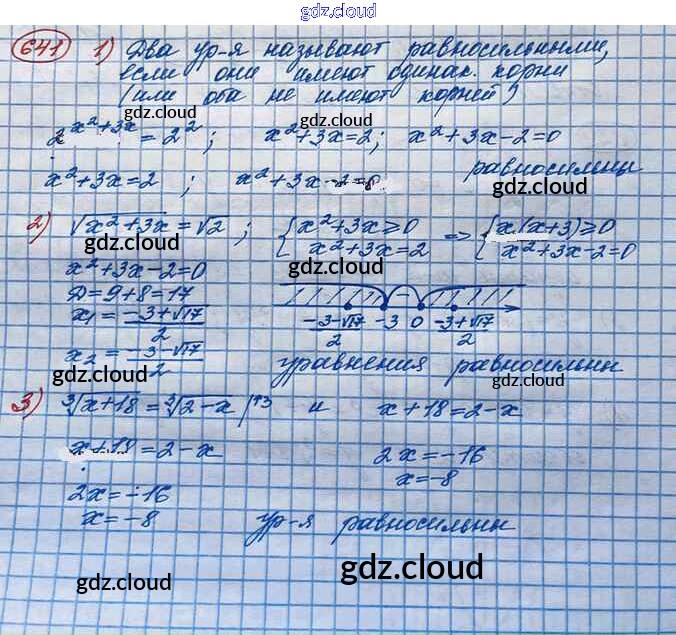 gdz.cloud
gdz.cloud
641 1) Два ур-я называют равносильными,
если они имеют одинак. корни
(или оба не имеют корней)
gdz.cloud gdz.cloud
2^(x²+3x) = 2²; x²+3x=2; x²+3x-2=0
равносильны
gdz.cloud
x²+3x=2; x²+3x-2=0
gdz.cloud
2) √(x²+3x) = √2; { x²+3x≥0 => { x(x+3)≥0
x²+3x=2 x²+3x-2=0
gdz.cloud gdz.cloud gdz.cloud
x²+3x-2=0
D=9+8=17
x₁ = (-3+√17)/2
x₂ = (-3-√17)/2
(-3-√17)/2 -3 0 (-3+√17)/2
уравнения равносильны
gdz.cloud gdz.cloud
3) ³√(x+18) = ³√(2-x) |↑3 и x+18=2-x
gdz.cloud gdz.cloud
x+18=2-x 2x=-16
x=-8
2x=-16
x=-8 ур-я равносильны
gdz.cloud gdz.cloud
gdz.cloud